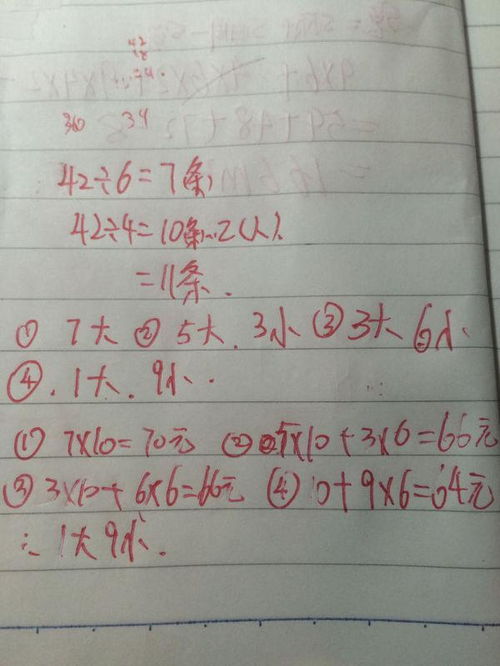 42
18
36 34
42÷6=7(条)
42÷4=10条…2(人)
=11条.
① 7大 ② 5大.3小 ③ 3大 6小
④.1大.9小.
① 7×10=70元 ② 5×10+3×6=66元
③ 3×10+6×6=66元 ④ 10+9×6=64元
∴ 1大9小.